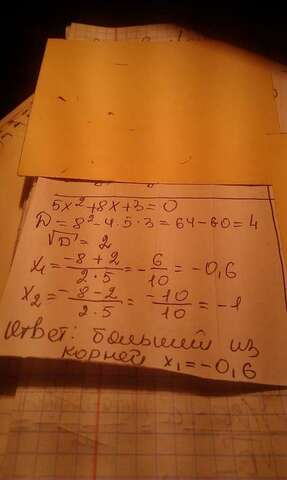 5x²+8x+3=0
D = 8²-4·5·3=64-60=4
√D = 2
x₁ = (-8+2)/(2·5) = -6/10 = -0,6
x₂ = (-8-2)/(2·5) = -10/10 = -1
Ответ: больший из
корней x₁=-0,6